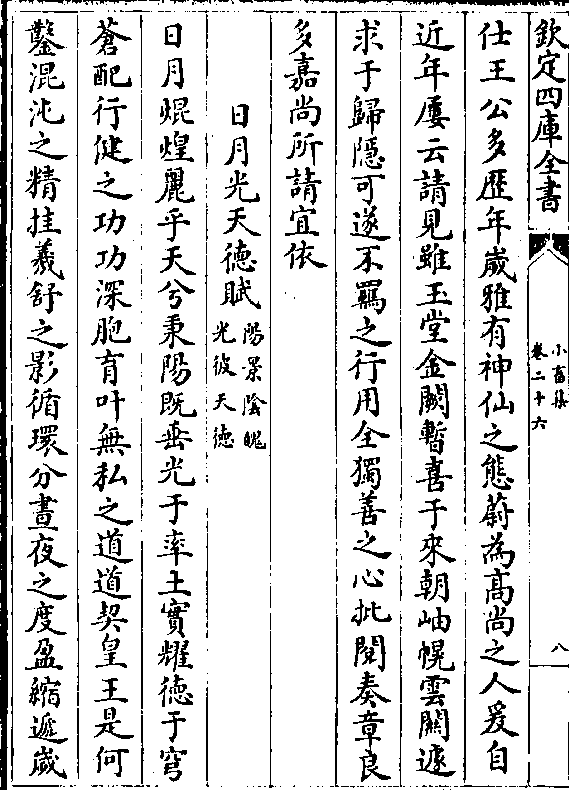 欽定四庫全書
小畜集
卷二十六
八
仕王公多歷年歲雅有神仙之態蔚為髙尚之人爰自
近年屢云請見雖玉堂金闕暫喜于來朝岫幌雲關遽
求于歸隱可遂不羈之行用全獨善之心批閱奏章良
多嘉尚所請宜依
日月光天德賦
陽景陰魄
光彼天德
日月焜煌麗乎天兮秉陽既垂光于率土實耀德于穹
蒼配行健之功功深胞育叶無私之道道契皇王是何
鑿混沌之精挂羲舒之影循環分晝夜之度盈縮遞歲